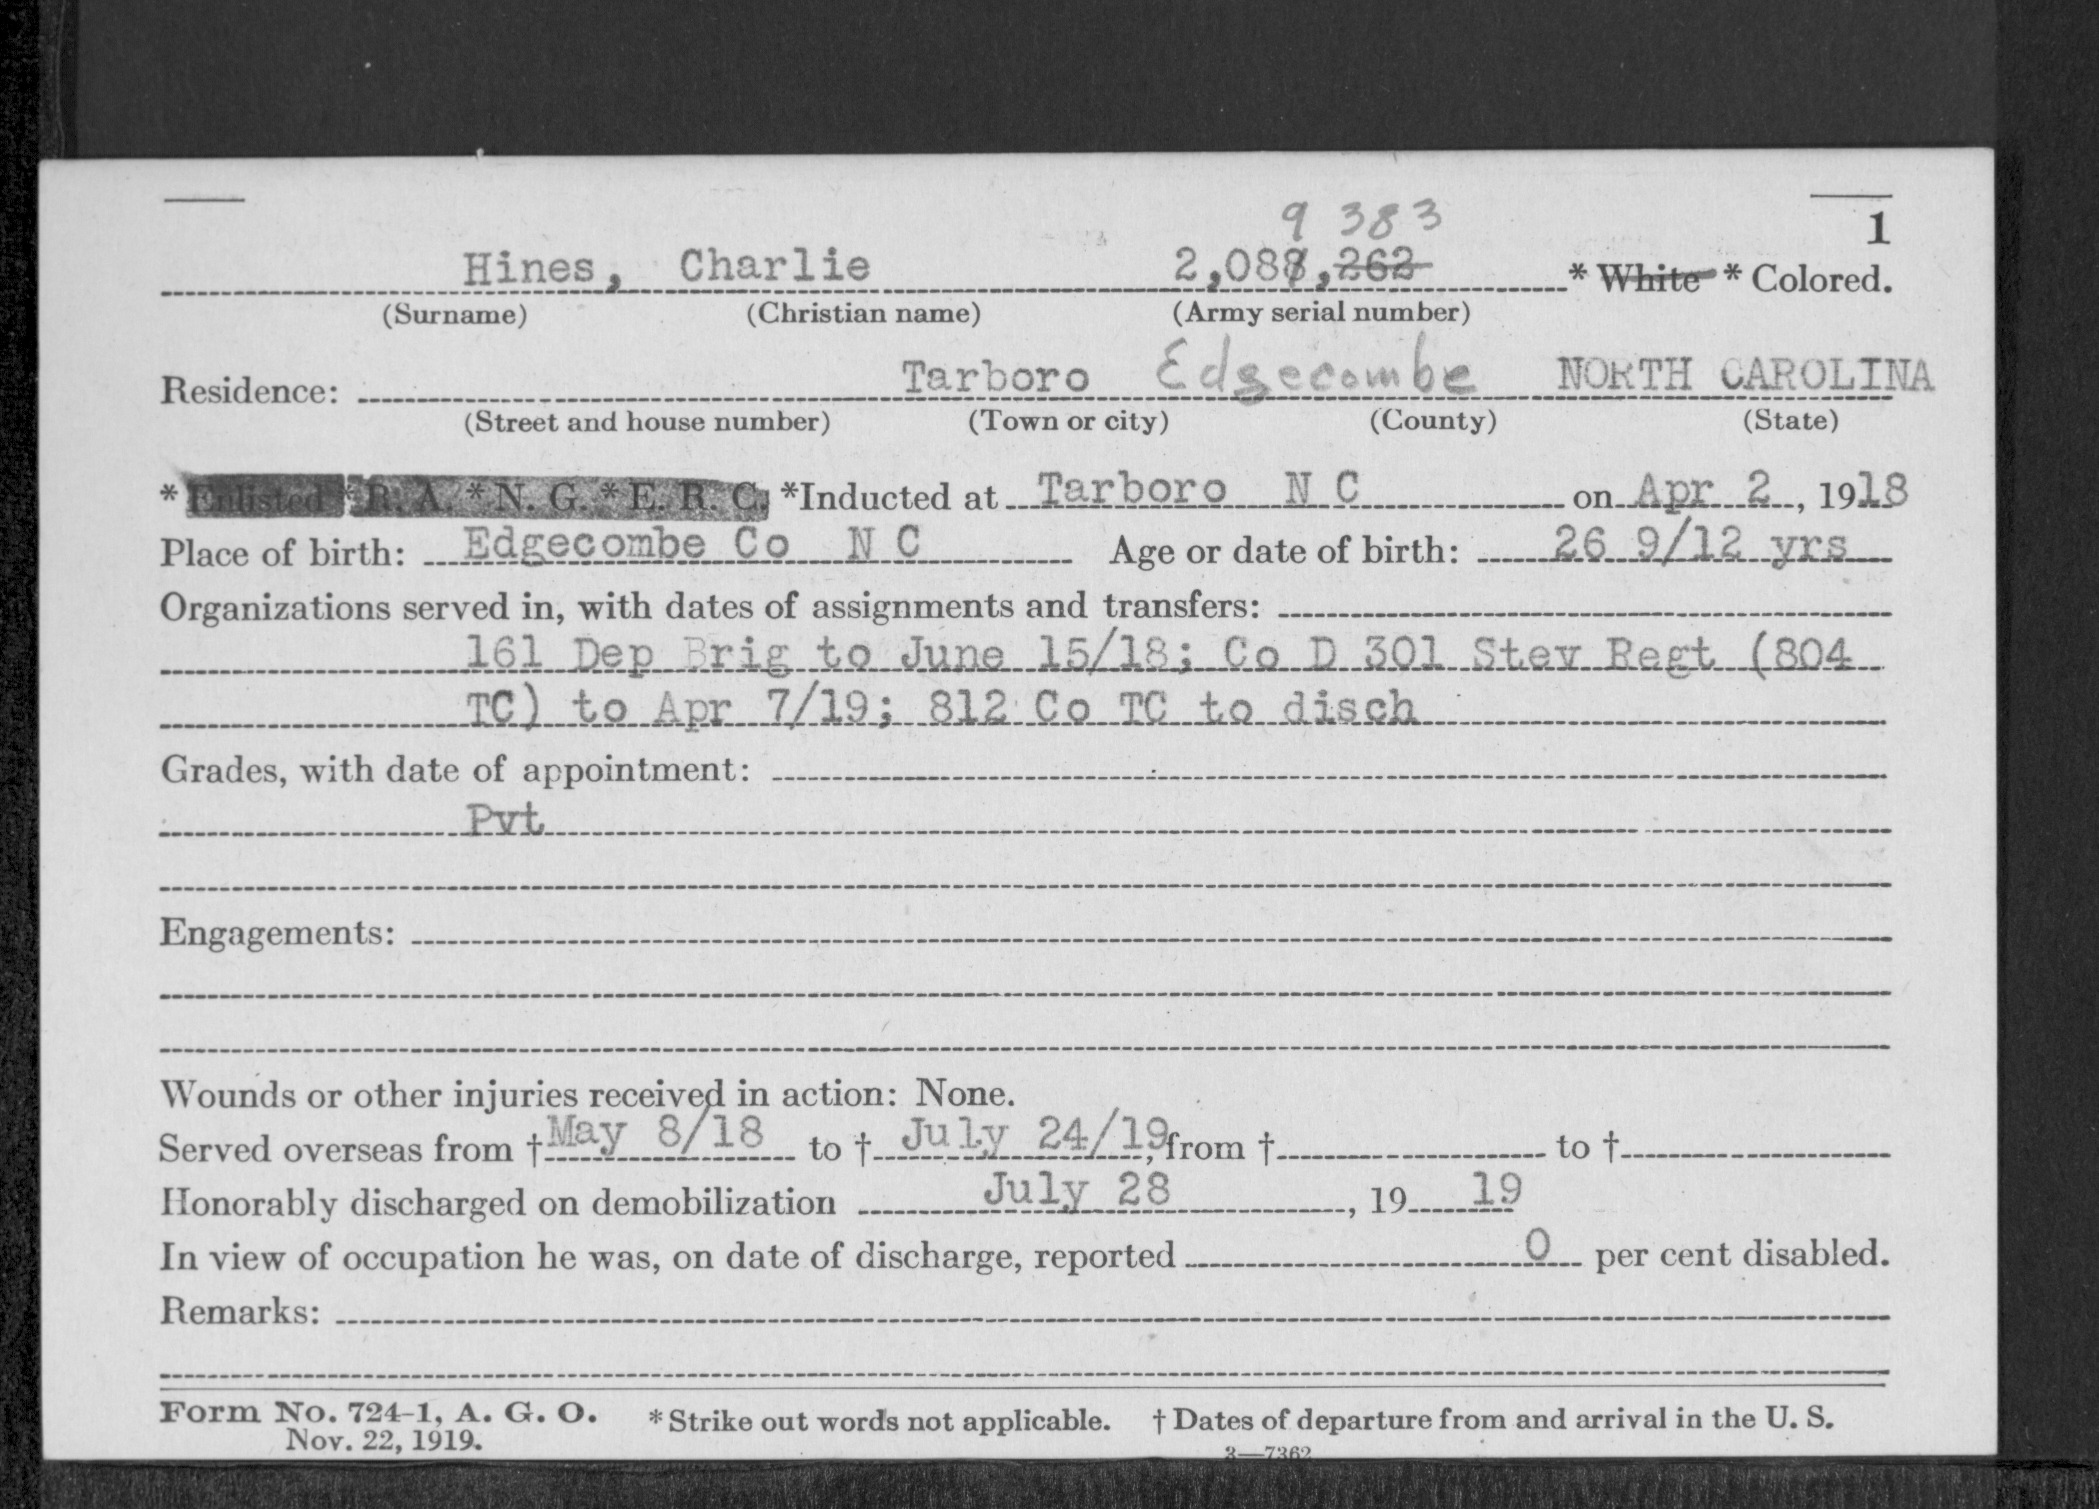 9 383
1
Hines, Charlie 2,088,262 * White * Colored.
(Surname) (Christian name) (Army serial number)
Residence: Tarboro Edgecombe NORTH CAROLINA
(Street and house number) (Town or city) (County) (State)
* Enlisted * R. A. * N. G. * E. R. C. *Inducted at Tarboro N C on Apr 2, 1918
Place of birth: Edgecombe Co N C Age or date of birth: 26 9/12 yrs
Organizations served in, with dates of assignments and transfers:
161 Dep Brig to June 15/18; Co D 301 Stev Regt (804
TC) to Apr 7/19; 812 Co TC to disch
Grades, with date of appointment:
Pvt
Engagements:
Wounds or other injuries received in action: None.
Served overseas from † May 8/18 to † July 24/19, from † to †
Honorably discharged on demobilization July 28, 19 19
In view of occupation he was, on date of discharge, reported 0 per cent disabled.
Remarks:
Form No. 724-1, A. G. O. * Strike out words not applicable. † Dates of departure from and arrival in the U. S.
Nov. 22, 1919.
3—7362